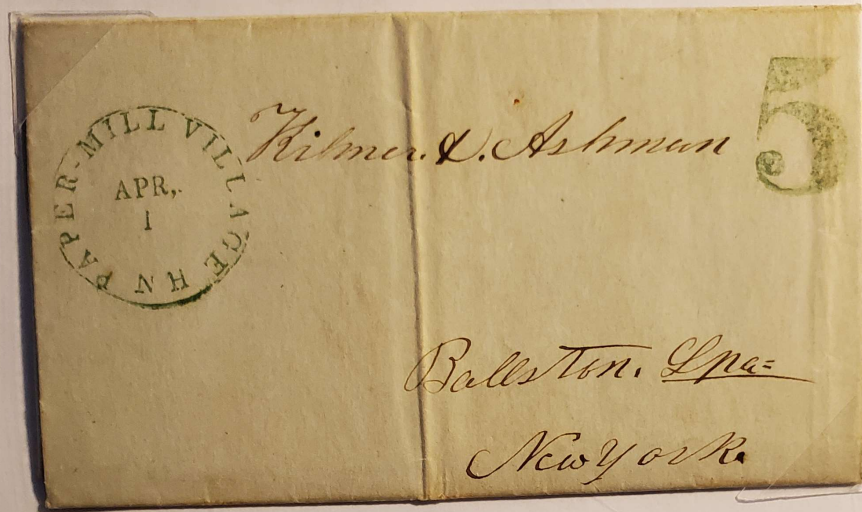 PAPER-MILL VILLAGE N H
APR,.
1
5
Kilmer. & . Ashmun
Ballston. Spa=
New York.